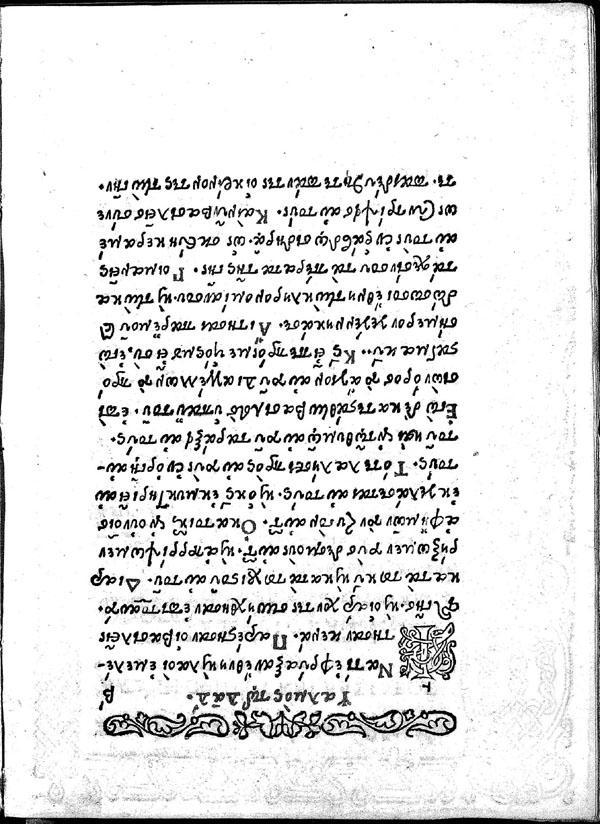 Ψαλμὸς τῷ Δαδ. β
Ἱνατί ἐφρύαξαν ἔθνη, ϗ λαοὶ ἐμελέ-
τησαν κενά. Παρέστησαν οἱ βασιλεῖς
τῆς γῆς. ϗ οἱ ἄρχοντες συνήχθησαν ἐπιτοαυτό.
κατὰ τοῦ κυ, ϗ κατὰ τοῦ χριστοῦ αὐτοῦ. Διαρ
ρήξωμεν τοὺς δεσμοὺς αὐτῶν. ϗ ἀπορρίψωμεν
ἀφ' ἡμῶν τὸν ζυγὸν αὐτῶν. Ὁ κατοικῶν ἐν οὐνοῖς
ἐκγελάσεται αὐτούς. ϗ ὁ κς ἐκμυκτηριεῖ αὐ
τούς. Τότε λαλήσει πρὸς αὐτοὺς ἐν ὀργῇ αὐ-
τοῦ ϗ ἐν τῷ θυμῷ αὐτοῦ ταράξει αὐτούς.
Ἐγὼ δὲ κατεστάθην βασιλεὺς ὑπ' αὐτοῦ. ἐπὶ
σιὼν ὄρος τὸ ἅγιον αὐτοῦ διαγγέλλων τὸ πρό
σταγμα κυ. Κς εἶπε πρός με ὑιός μου εἶ σύ, ἐγὼ
σήμερον γεγέννηκά σε. Αἴτησαι παρ' ἐμοῦ ϗ
δώσω σοι ἔθνη τὴν κληρονομίαν σου. ϗ τὴν κα
τάσχεσίν σου τὰ πέρατα τῆς γῆς. Ποιμανεῖς
αὐτοὺς ἐν ῥάβδῳ σιδηρᾷ. ὡς σκεύη κεραμέ
ως συντρίψεις αὐτούς. Καὶ νῦν βασιλεῖς σύνε
τε. παιδεύθητε πάντες οἱ κρίνοντες τὴν γῆν.